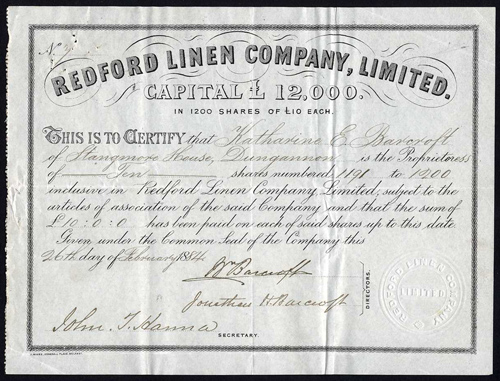 No
REDFORD LINEN COMPANY, LIMITED.
CAPITAL £ 12,000.
IN 1200 SHARES OF £10 EACH.
THIS IS TO CERTIFY that Katharine E. Barcroft
of Stangmore House, Dungannon is the Proprietress
of Ten shares numbered 1191 to 1200
inclusive in Redford Linen Company, Limited, subject to the
articles of association of the said Company and that the sum of
£10:0:0 has been paid on each of said shares up to this date
Given under the Common Seal of the Company this
26th day of February 1884
Barcroft
Jonathan H. Barcroft
DIRECTORS.
John T. Hanna
SECRETARY.
REDFORD LINEN COMPANY
LIMITED